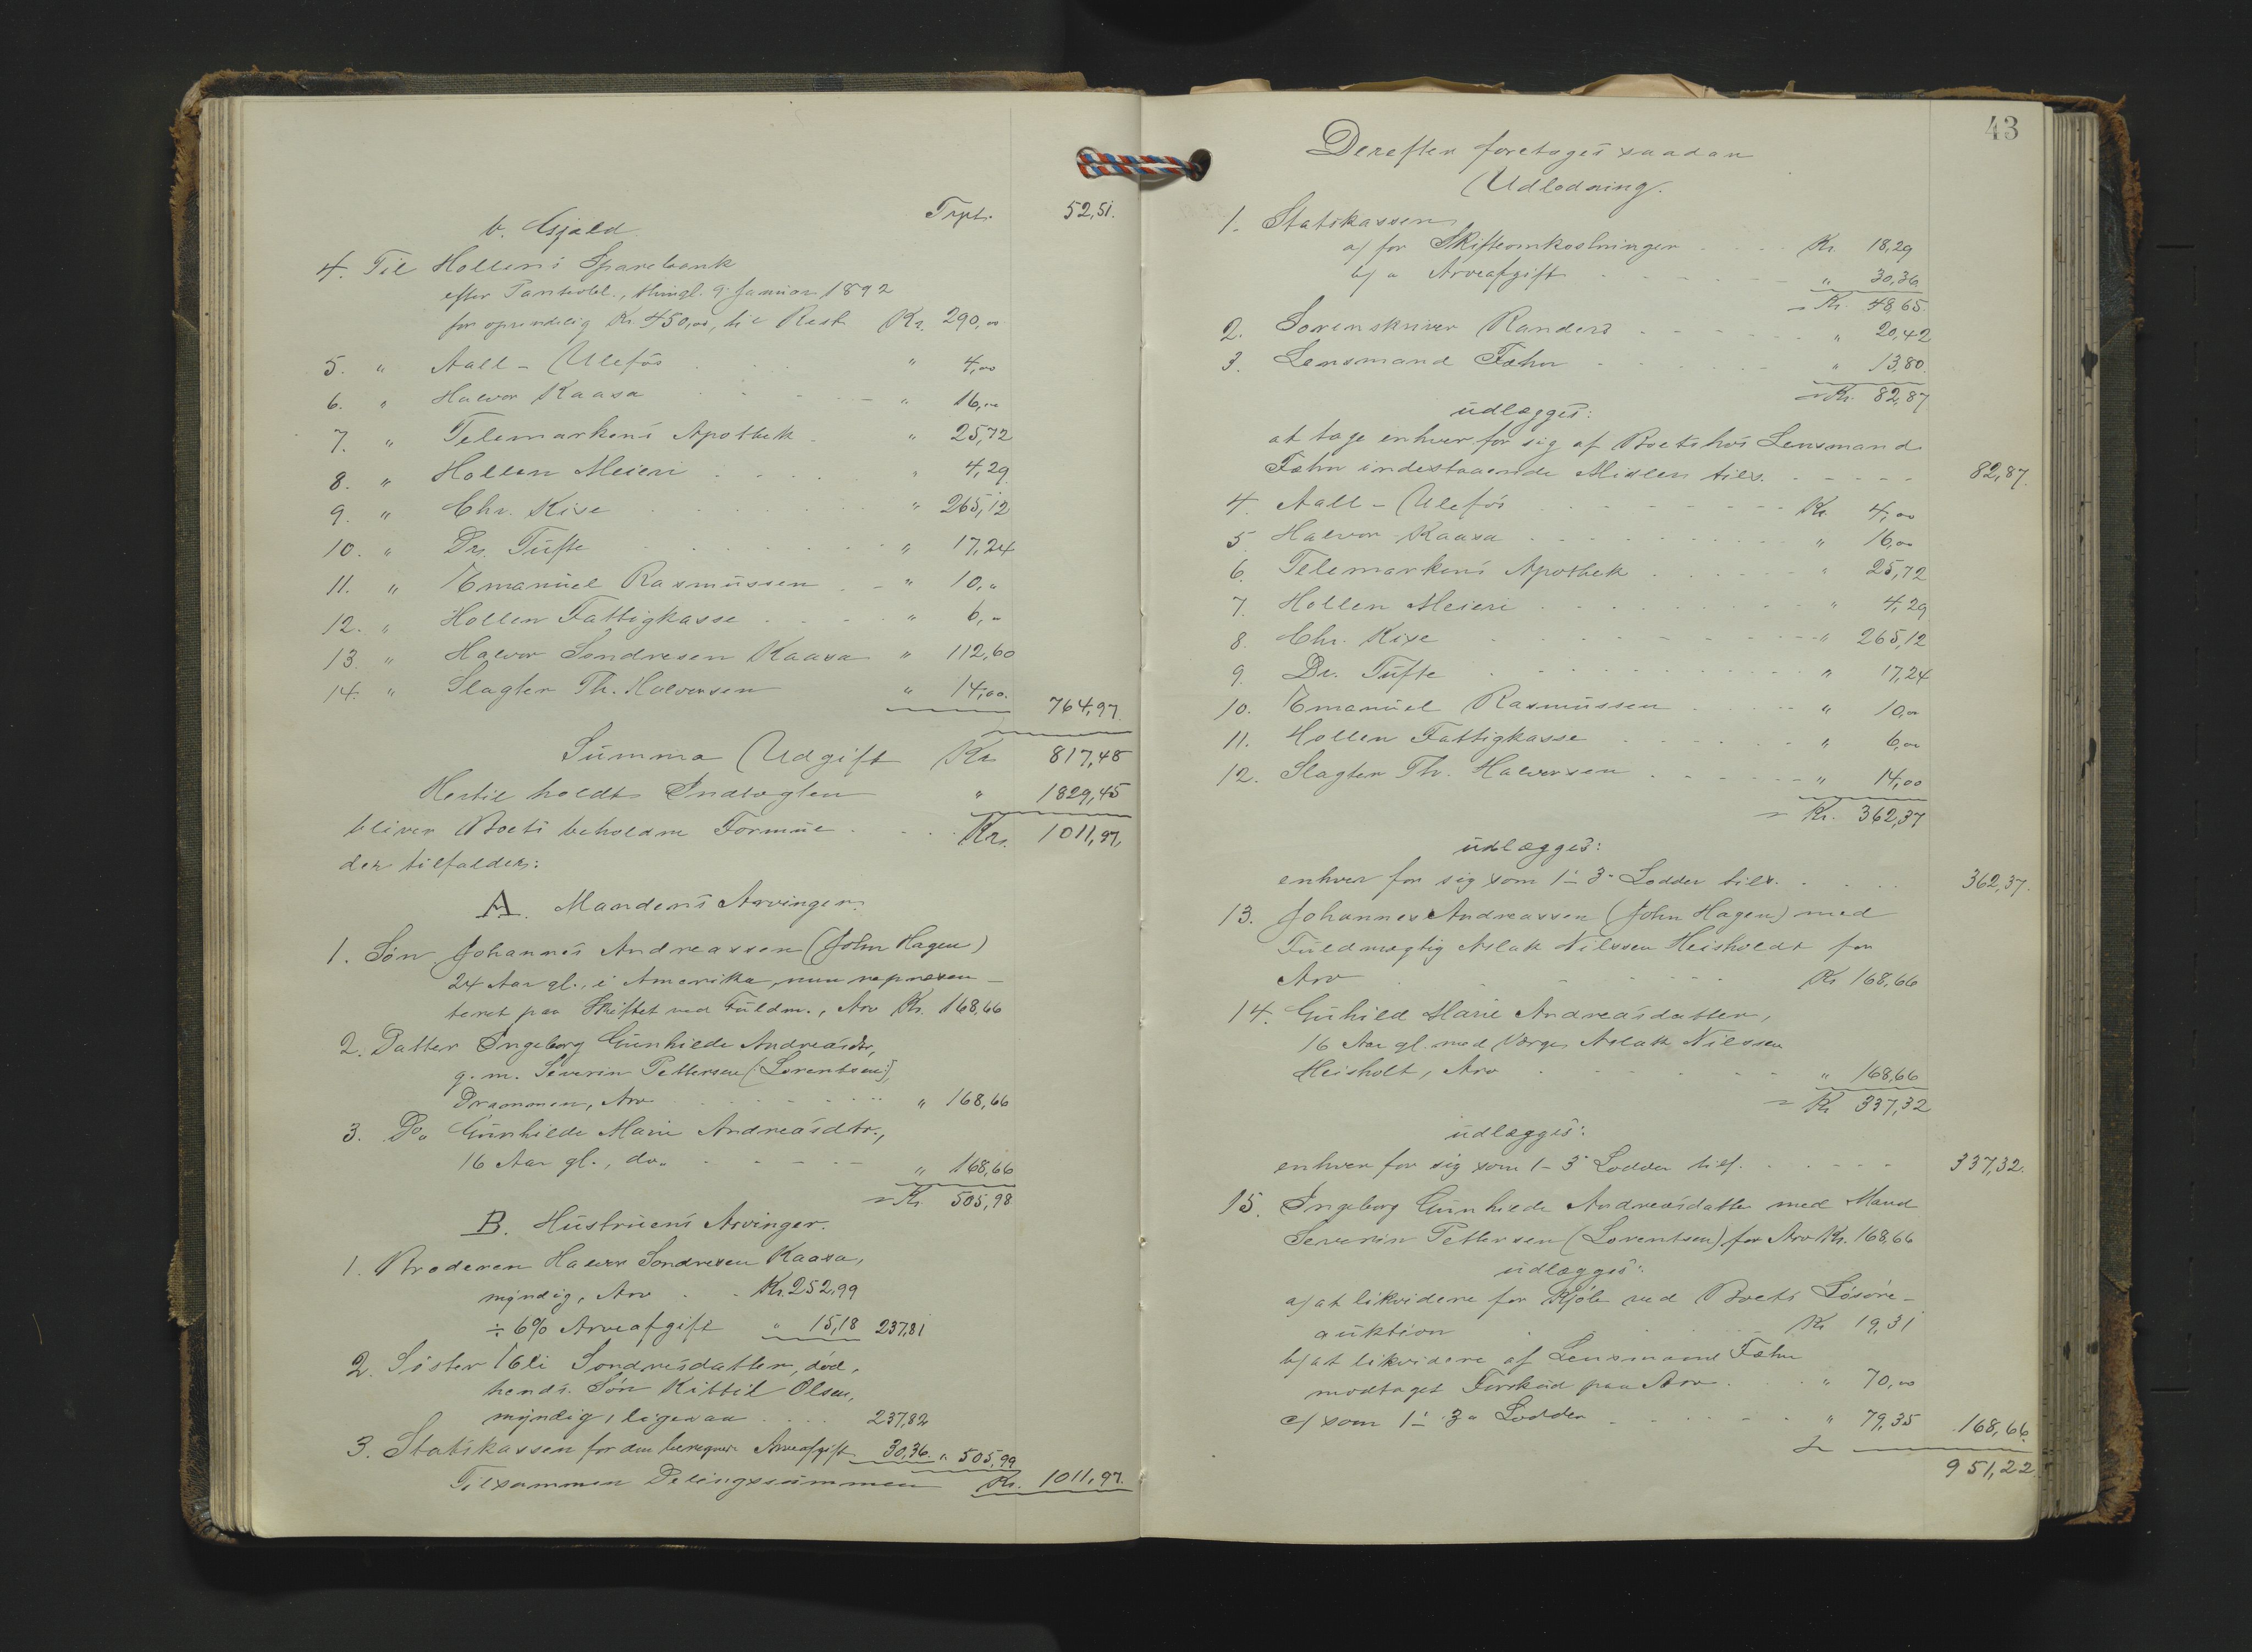 Trpt. 52,51.
b. Gjæld
4. Til Hollens Sparebank
efter Panteobl., thingl. 9 Januar 1892
for oprindelig Kr. 450,00, til Rest Kr. 290,00
5. " Aall-Ulefos " 4,00
6. " Halvor Kaasa " 16,00
7. " Telemarkens Apothek " 25,72
8. " Hollen Meieri " 4,29
9. " Chr. Kise " 265,12
10. " Dr. Tufte " 17,24
11. " Emanuel Rasmussen " 10,"
12. " Hollen Fattigkasse " 6,"
13. " Halvor Sondresen Kaasa " 112,60
14. " Slagter Th. Halvorsen " 14,00.
764,97.
Summa Udgift Kr 817,48
Hertil holdt Indtægten " 1829,45
bliver Boets beholdne Formue Kr. 1011,97,
der tilfalder:
A. Mandens Arvinger.
1. Søn Johannes Andreassen (John Hagen)
24 Aar gl., i Amerika, nu repræsen-
teret paa Skiftet ved Fuldm., Arv Kr. 168,66
2. Datter Ingeborg Gunhilde Andreasdtr,
g. m. Severin Pettersen (Lorentsen),
Drammen, Arv " 168,66
3. Do. Gunhilde Marie Andreasdtr.,
16 Aar gl., do. " 168,66
= Kr 505,98
B. Hustruens Arvinger.
1. Broderen Halvor Sondresen Kaasa,
myndig, Arv Kr. 252,99
÷ 6% Arveafgift " 15,18 237,81
2. Søster Eli Sondresdatter, død,
hends Søn Kittil Olsen,
myndig, ligesaa 237,82
3. Statskassen for den beregnede Arveafgift 30,36. " 505,99
Tilsammen Delingssummen Kr. 1011,97.
43
Derefter foretoges saadan
Udlodning.
1. Statskassen
a/ for Skifteomkostninger Kr. 18,29
b/ " Arveafgift " 30,36
= Kr. 48,65.
2. Sorenskriver Randers " 20,42
3. Lensmand Fæhn " 13,80.
= Kr. 82,87
udlægges:
at tage enhver for sig af Boets hos Lensmand
Fæhn indestaaende Midler tils. 82,87.
4. Aall-Ulefos Kr. 4,00
5. Halvor Kaasa " 16,00
6. Telemarkens Apothek " 25,72
7. Hollen Meieri " 4,29
8. Chr. Kise " 265,12
9. Dr. Tufte " 17,24
10. Emanuel Rasmussen " 10,00
11. Hollen Fattigkasse " 6,00
12. Slagter Th. Halvorsen " 14,00
= Kr. 362,37
udlægges:
enhver for sig som 1ste 3die Lodder tils. 362,37.
13. Johannes Andreassen (John Hagen) med
Fuldmægtig Aslak Nilssen Heisholdt for
Arv Kr 168,66
14. Guhild Marie Andreasdatter,
16 Aar gl. med Værge Aslak Nilssen
Heisholt, Arv " 168,66
= Kr 337,32
udlægges:
enhver for sig som 1- 3' Lodder tils. 337,32.
15. Ingeborg Gunhilde Andreasdatter med Mand
Severin Pettersen (Lorentsen) for Arv Kr. 168,66
udlægges:
a/ at likvidere for Kjøb ved Boets Løsøre-
auktion Kr 19,31
b/ at likvidere af Lensmand Fæhn
modtaget Forskud paa Arv " 70,00
c/ som 1ste 3die Lodder " 79,35 168,66.
951,22